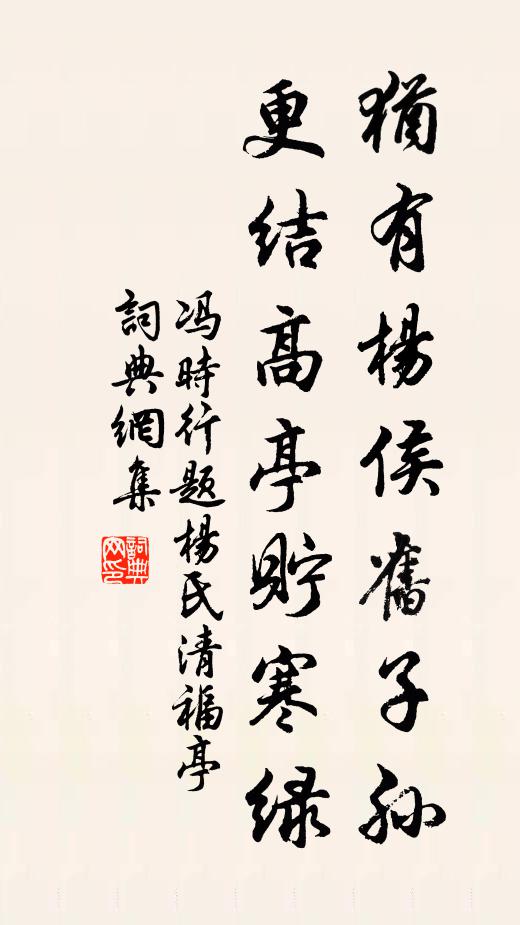 猶有楊侯舊子孫
更結高亭貯寒綠
冯時行题楊氏清福亭
詞典網集
詞典网印